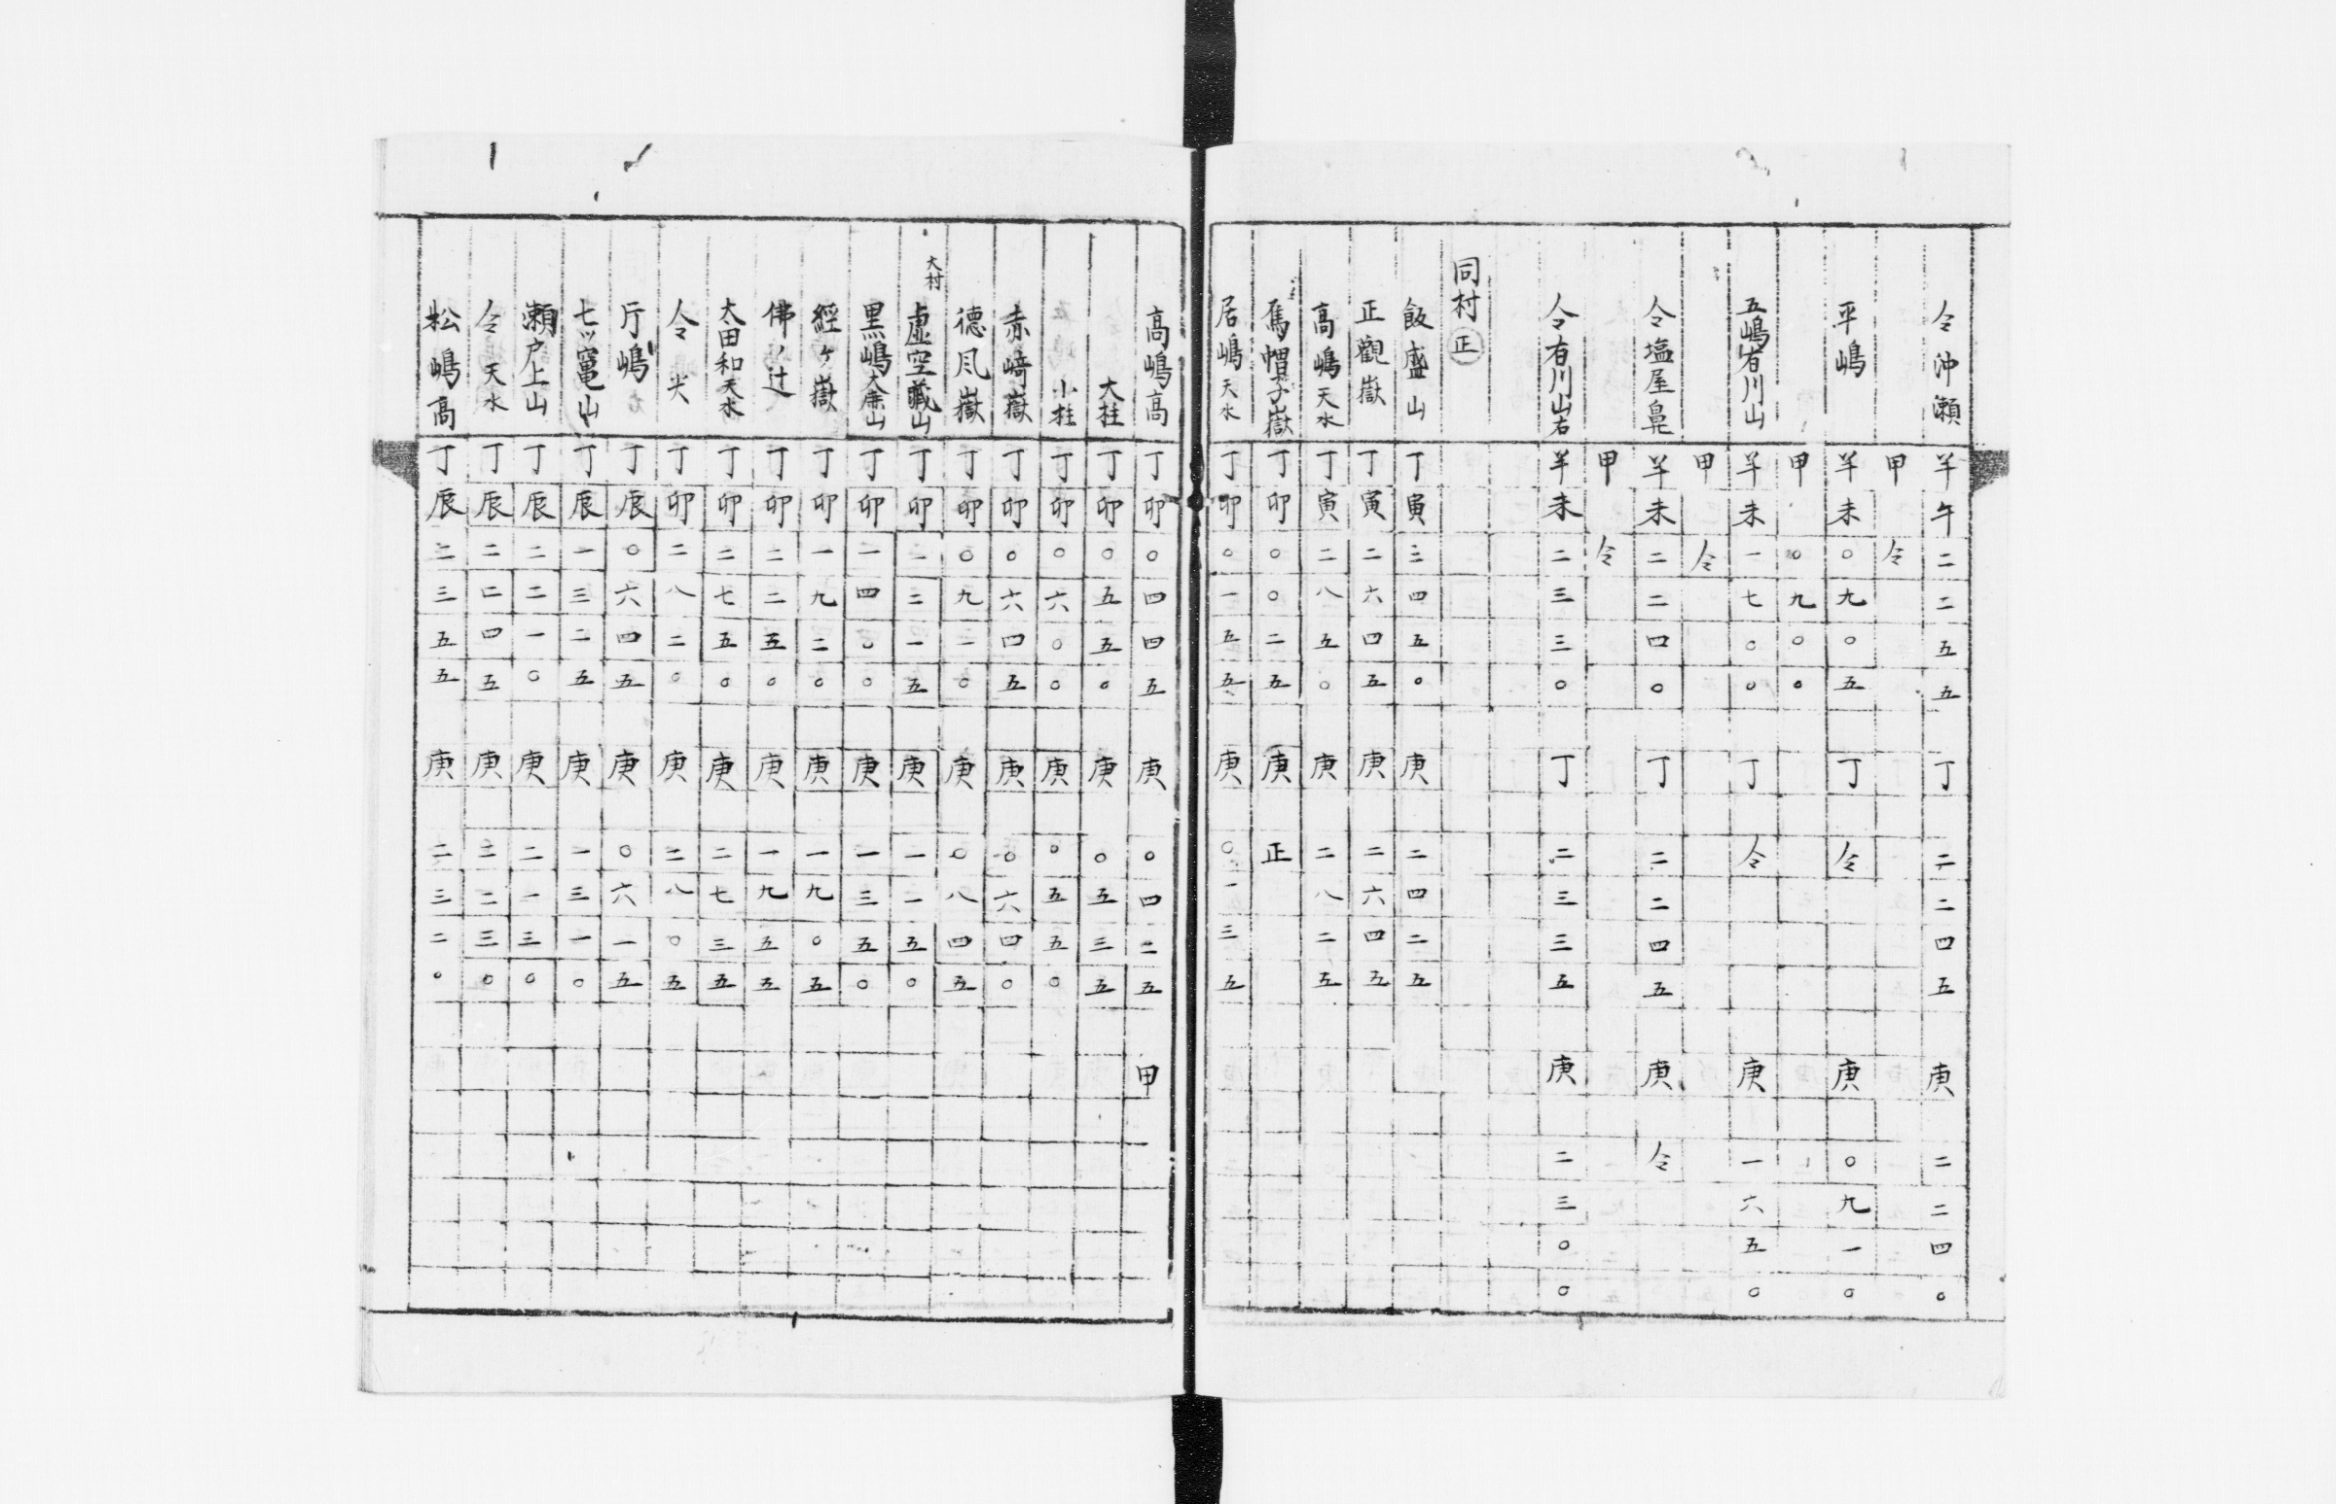 仝沖瀬 羊午二二五五 丁二二四五 庚二二四〇
甲仝
平嶋 羊未〇九〇五 丁仝 庚〇九一〇
甲〇九〇〇
五嶋有川山 羊未一七〇〇 丁仝 庚一六五〇
甲仝
仝塩屋鼻 羊未二二四〇 丁二二四五 庚仝
甲仝
仝有川山右 羊未二三三〇 丁二三三五 庚二三〇〇
同村㊣
飯盛山 丁寅三四五〇 庚二四二五
正觀嶽 丁寅二六四五 庚二六四五
髙嶋天水 丁寅二八五〇 庚二八二五
烏帽子嶽 丁卯〇〇二五 庚正
居嶋天水 丁卯〇一五五 庚〇一三五
髙嶋髙 丁卯〇四四五 庚〇四二五 甲
大柱 丁卯〇五五〇 庚〇五三五
小柱 丁卯〇六〇〇 庚〇五五〇
赤﨑嶽 丁卯〇六四五 庚〇六四〇
德凨嶽 丁卯〇九一〇 庚〇八四五
大村
虚空藏山 丁卯一二一五 庚一二五〇
黒嶋山 丁卯一四〇〇 庚一三五〇
經ヶ嶽 丁卯一九二〇 庚一九〇五
佛ノ辻 丁卯二二五〇 庚一九五五
太田和天水 丁卯二七五〇 庚二七三五
仝 丁卯二八二〇 庚二八〇五
片嶋 丁辰〇六四五 庚〇六一五
七ツ竃山 丁辰一三二五 庚一三一〇
瀬戸上山 丁辰二二一〇 庚二一三〇
仝天水 丁辰二二四五 庚二二三〇
松嶋髙 丁辰二三五五 庚二三二〇